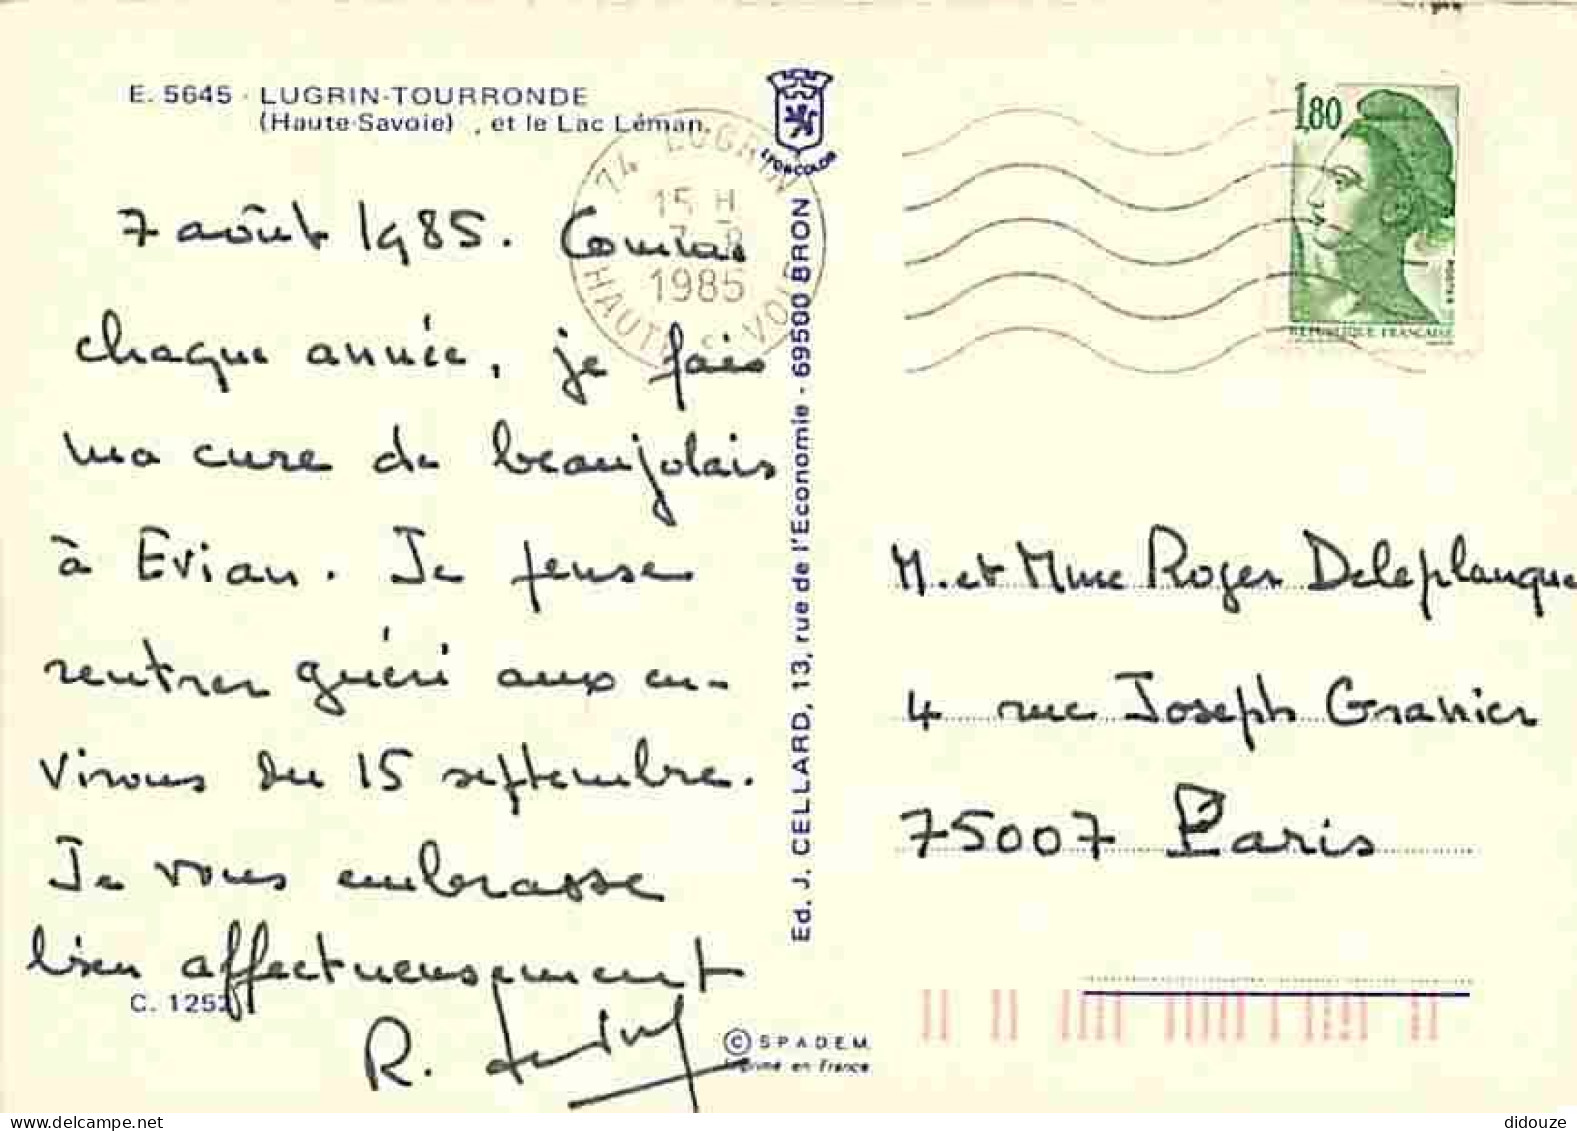 E. 5645 - LUGRIN-TOURRONDE
(Haute-Savoie) , et le Lac Léman.
LYONCOLOR
74 LUGRIN
15 H
1985
7 août 1985. Comme
chaque année, je fais
ma cure de beaujolais
à Evian. Je pense
rentrer guéri aux en-
virons du 15 septembre.
Je vous embrasse
bien affectueusement
R.
C. 1252
Ed. J. CELLARD, 13, rue de l'Economie - 69500 BRON
© SPADEM
Imprimé en France
1,80
REPUBLIQUE FRANÇAISE
M. et Mme Roger Deleplanque
4 rue Joseph Granier
75007 Paris
didouze